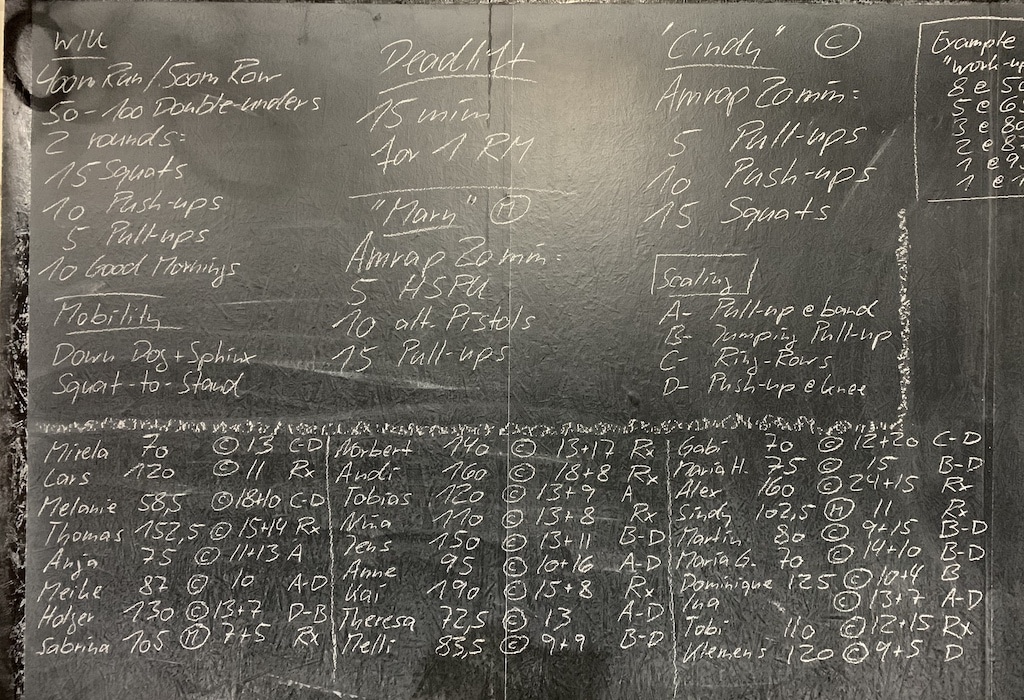 W/U
400m Run/500m Row
50-100 Double-unders
2 rounds:
15 Squats
10 Push-ups
5 Pull-ups
10 Good Mornings
Mobility
Down Dog + Sphinx
Squat-to-Stand
Deadlift
15 min
for 1 RM
"Mary" Ⓜ
Amrap 20 min:
5 HSPU
10 alt. Pistols
15 Pull-ups
"Cindy" Ⓒ
Amrap 20 min:
5 Pull-ups
10 Push-ups
15 Squats
Scaling
A- Pull-up @ band
B- Jumping Pull-up
C- Ring-Rows
D- Push-up @ knee
Example
"work-up
8 @ 50
5 @ 6
3 @ 80
2 @ 87
1 @ 9
1 @ 1
Mirela 70 Ⓒ 13 C-D
Lars 120 Ⓒ 11 Rx
Melanie 58,5 Ⓒ 18+10 C-D
Thomas 152,5 Ⓒ 15+14 Rx
Anja 75 Ⓒ 11+13 A
Meike 87 Ⓒ 10 A-D
Holger 130 Ⓒ 13+7 D-B
Sabrina 105 Ⓜ 7+5 Rx
Norbert 140 Ⓒ 13+17 Rx
Andi 160 Ⓒ 18+8 Rx
Tobias 120 Ⓒ 13+9 A
Nina 110 Ⓒ 13+8 Rx
Jens 150 Ⓒ 13+11 B-D
Anne 95 Ⓒ 10+16 A-D
Kai 190 Ⓒ 15+8 Rx
Theresa 72,5 Ⓒ 13 A-D
Melli 83,5 Ⓒ 9+9 B-D
Gabi 70 Ⓒ 12+20 C-D
Maria H. 75 Ⓒ 15 B-D
Alex 160 Ⓒ 24+15 Rx
Sindy 102,5 Ⓜ 11 Rx
Martin 80 Ⓒ 9+15 B-D
Maria G. 70 Ⓒ 14+10 B-D
Dominique 125 Ⓒ 10+4 B
Ina Ⓒ 13+7 A-D
Tobi 110 Ⓒ 12+15 Rx
Klemens 120 Ⓒ 9+5 D